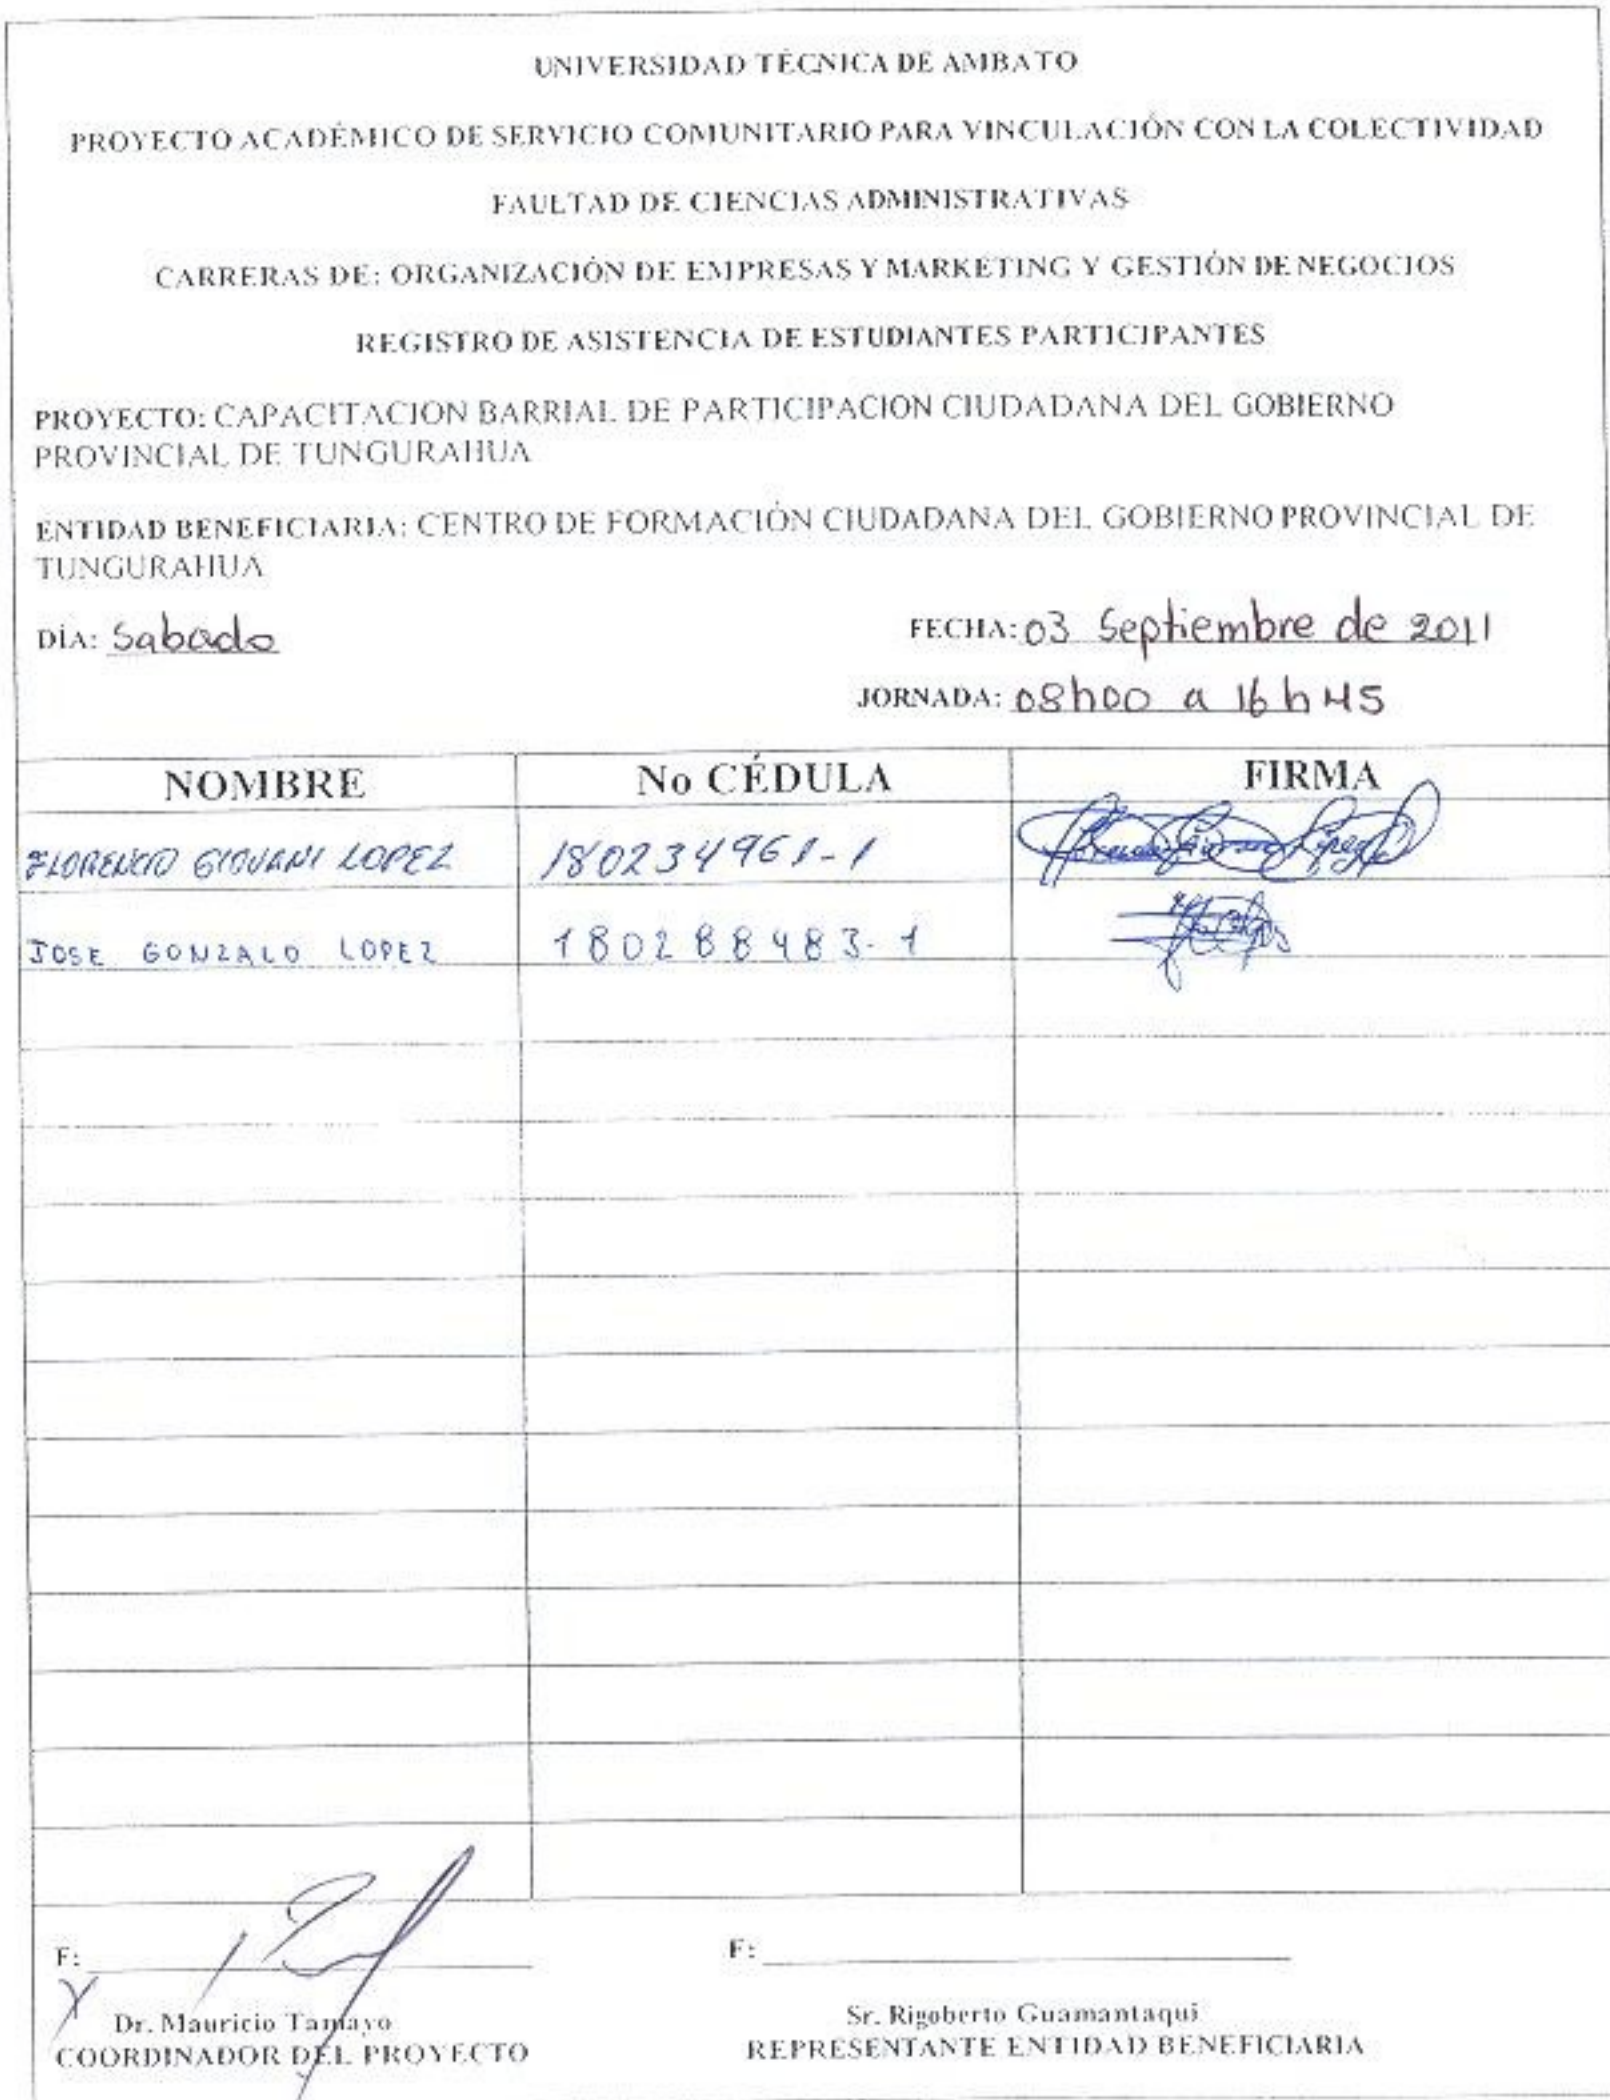 UNIVERSIDAD TÉCNICA DE AMBATO
PROYECTO ACADÉMICO DE SERVICIO COMUNITARIO PARA VINCULACIÓN CON LA COLECTIVIDAD
FAULTAD DE CIENCIAS ADMINISTRATIVAS
CARRERAS DE: ORGANIZACIÓN DE EMPRESAS Y MARKETING Y GESTIÓN DE NEGOCIOS
REGISTRO DE ASISTENCIA DE ESTUDIANTES PARTICIPANTES
PROYECTO: CAPACITACION BARRIAL DE PARTICIPACION CIUDADANA DEL GOBIERNO
PROVINCIAL DE TUNGURAHUA
ENTIDAD BENEFICIARIA: CENTRO DE FORMACIÓN CIUDADANA DEL GOBIERNO PROVINCIAL DE
TUNGURAHUA
DÍA: Sabado FECHA: 03 Septiembre de 2011
JORNADA: 08h00 a 16h45
NOMBRE No CÉDULA FIRMA
FLORENCIO GIOVANI LOPEZ 180234961-1
JOSE GONZALO LOPEZ 180288483-1
F: F:
Dr. Mauricio Tamayo Sr. Rigoberto Guamantaqui
COORDINADOR DEL PROYECTO REPRESENTANTE ENTIDAD BENEFICIARIA